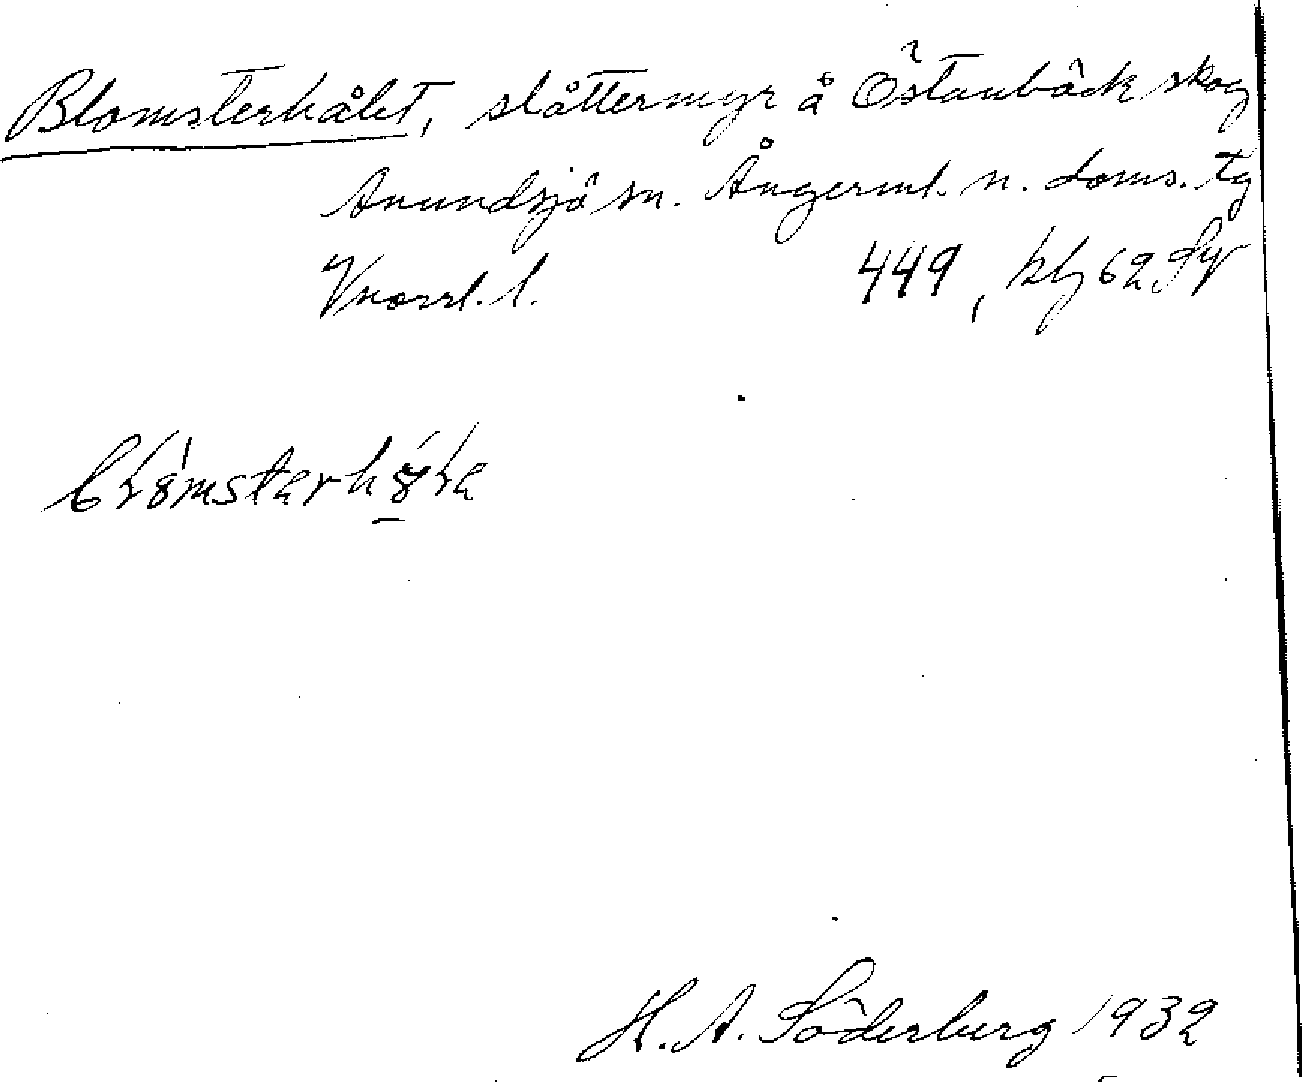 Blomsterhålet, slåttermyr å Östanbäck skog
Anundsjö sn. Ångerml. n. doms. tg
Vnorrl. l. 449, blz 62 Sv
H. A. Söderberg 1932